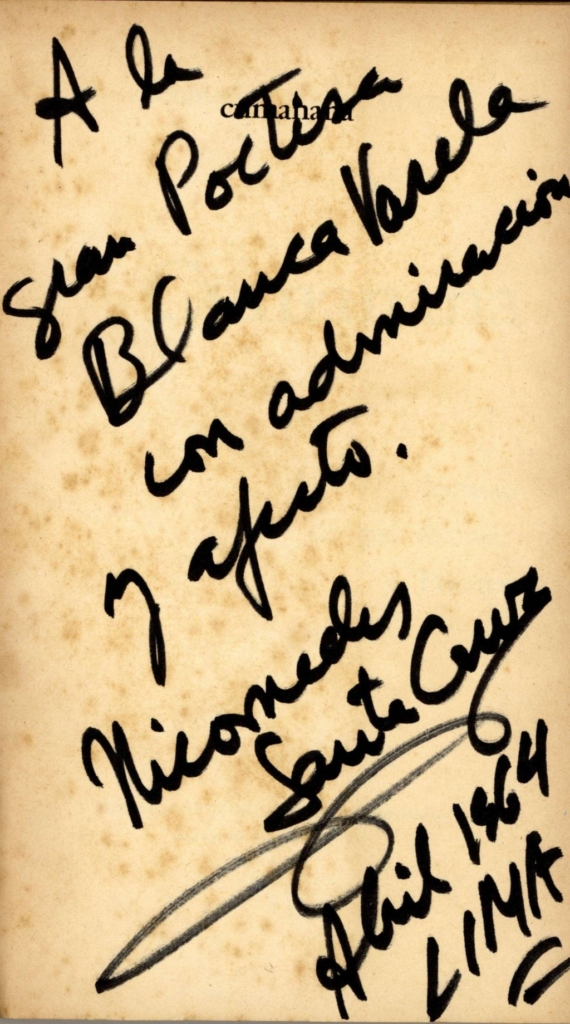 A la
cumanana
gran Poetisa
Blanca Varela
con admiracion
y afecto.
Nicomedes
Santa Cruz
Abril 1964
LIMA